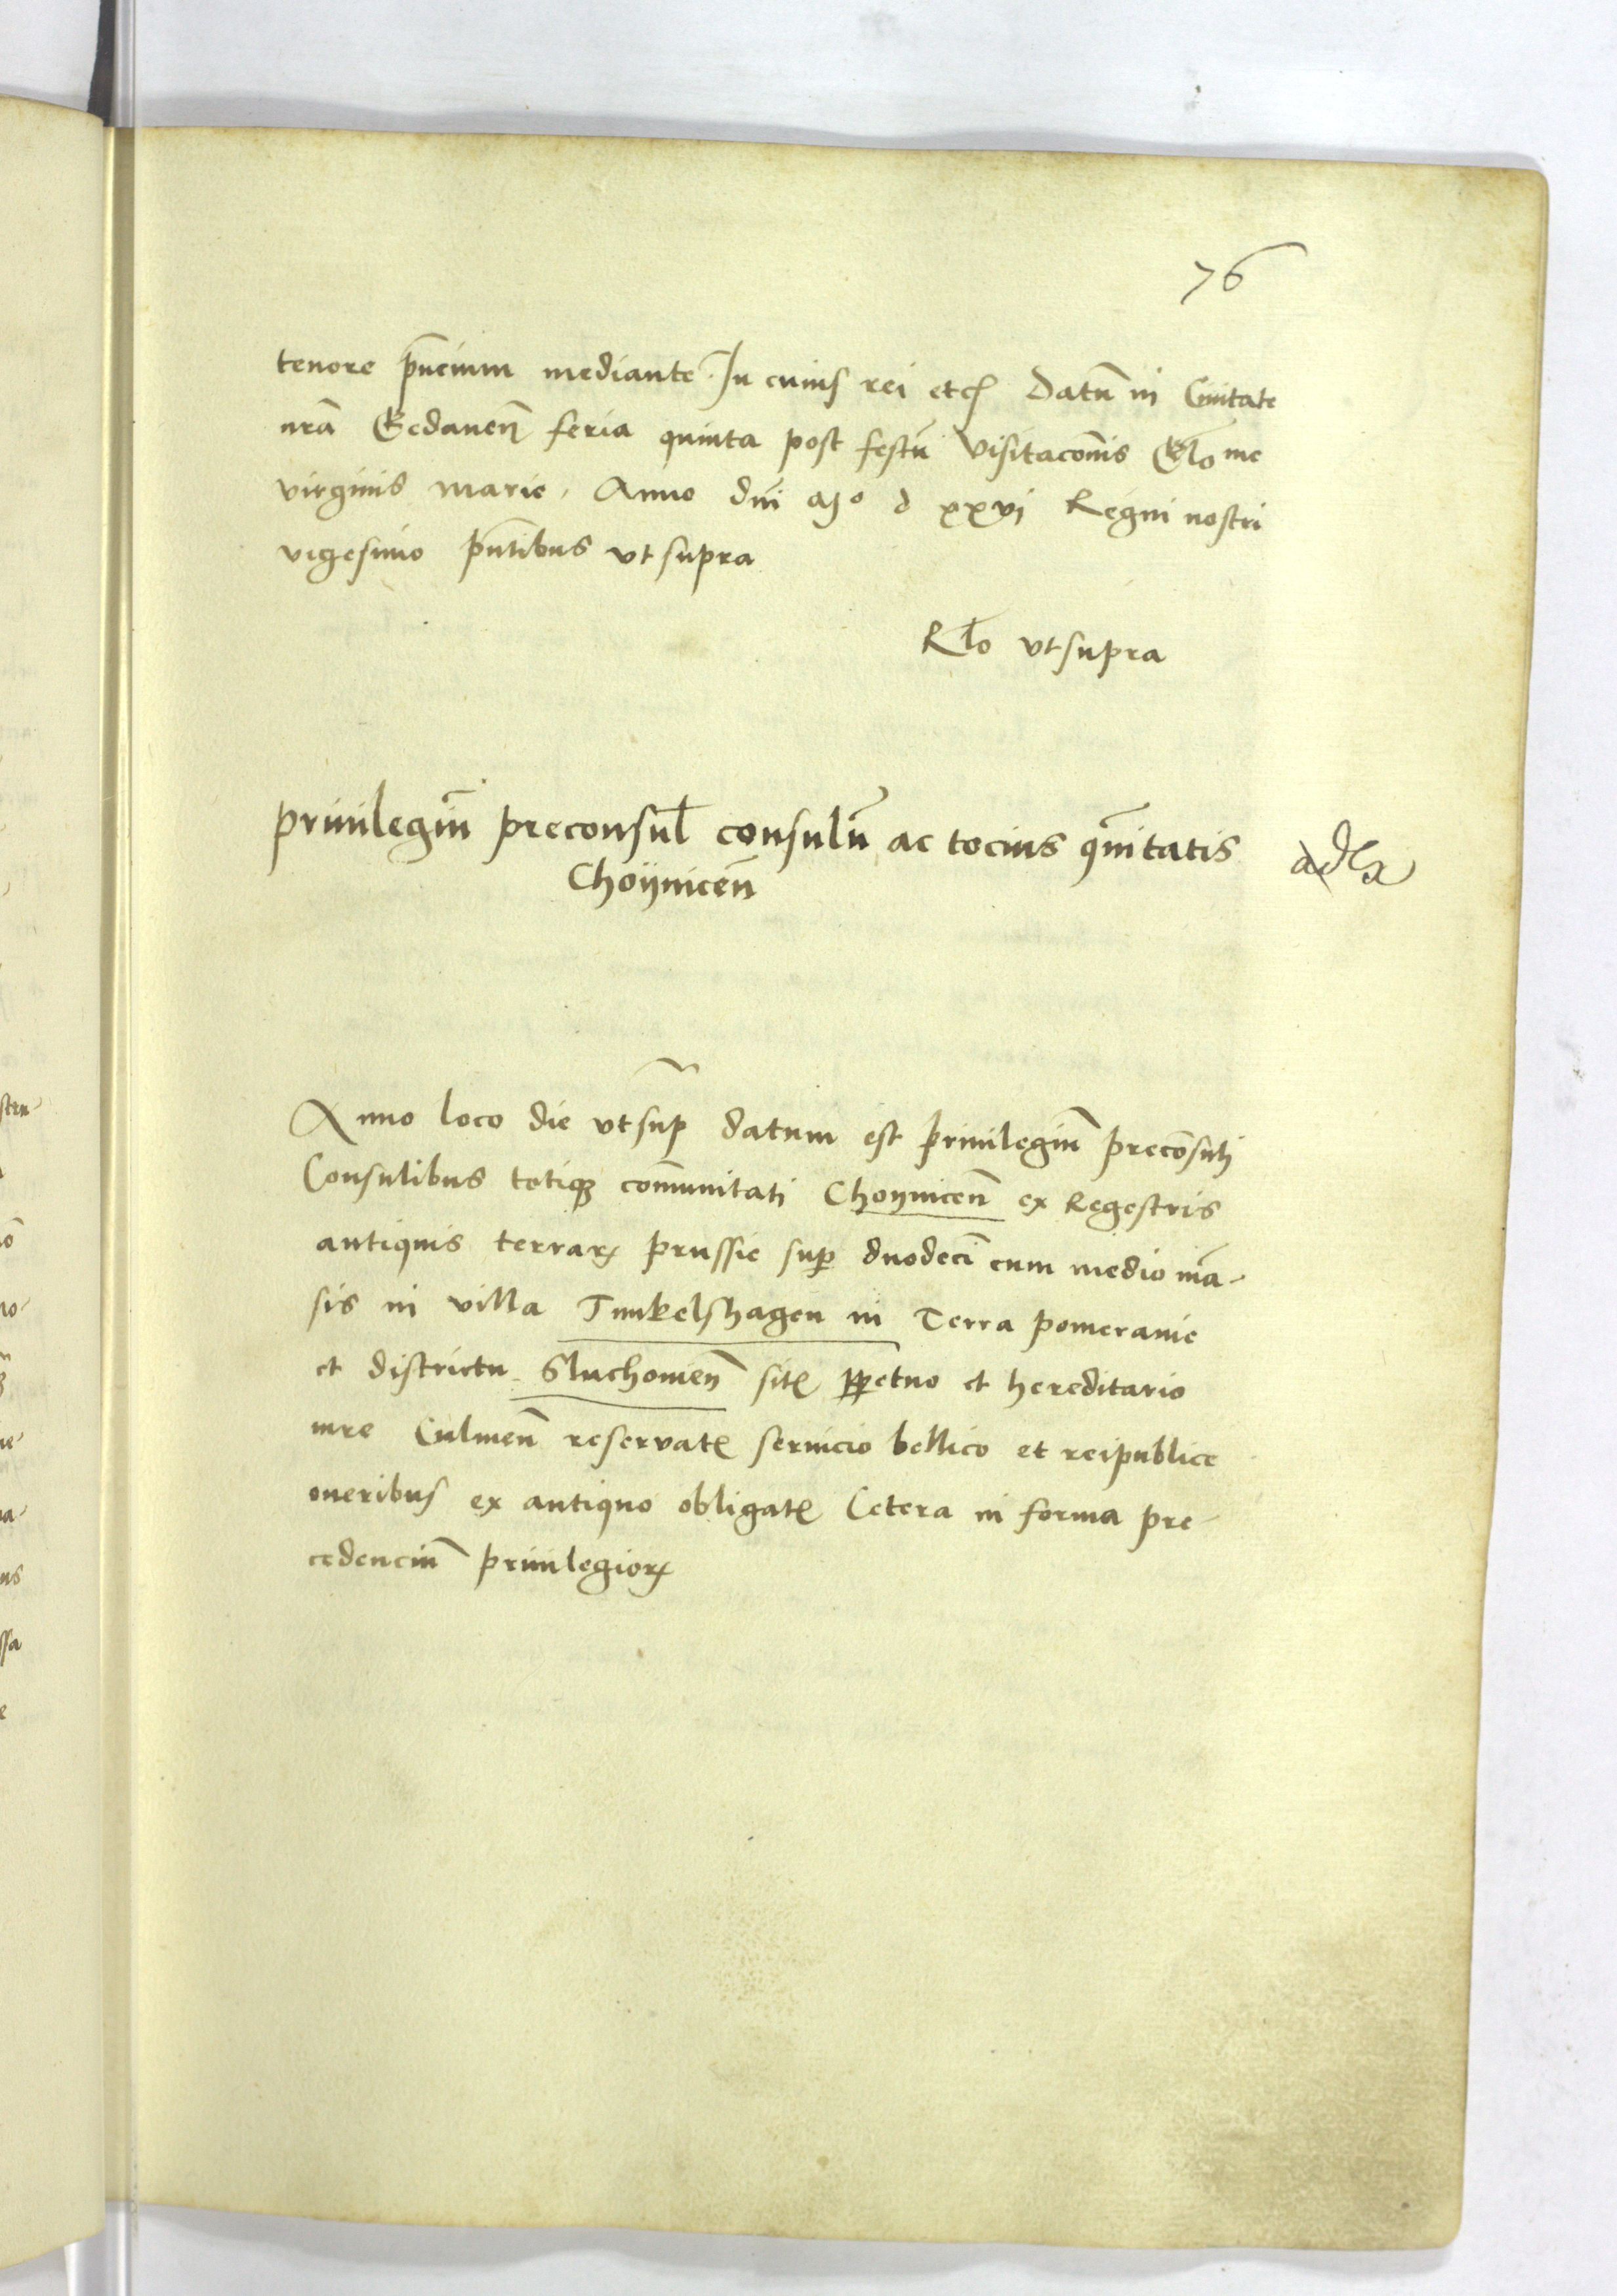 76
tenore pñcium mediante. In cuius rei etc̃ Datũ in Ciuitate
nrã Gedaneñ feria quinta post festũ visitacõnis Glo me
virginis marie, Anno dñi Mº d xxvi Regni nostri
vigesimo pñtibus vt supra
Rlo vt supra
priuilegiũ preconsul̃ consulũ ac tocius 9ñitatis
Choÿniceñ
Anno loco die vt sup̃ datum est priuilegiũ precõsuli
Consulibus totiq3 com̃unitati Choyniceñ ex Regestris
antiquis terrarꝝ prussie suꝑ duodecĩ cum medio mã-
sis in villa Junkelshagen in Terra pomeranie
et districtu Sluchouieñ sitꝭ ꝑpetuo et hereditario
iure Culmeñ reseruatꝭ seruicio bellico et reipublice
oneribus ex antiquo obligatꝭ Cetera in forma pre-
cedenciũ priuilegiorꝝ